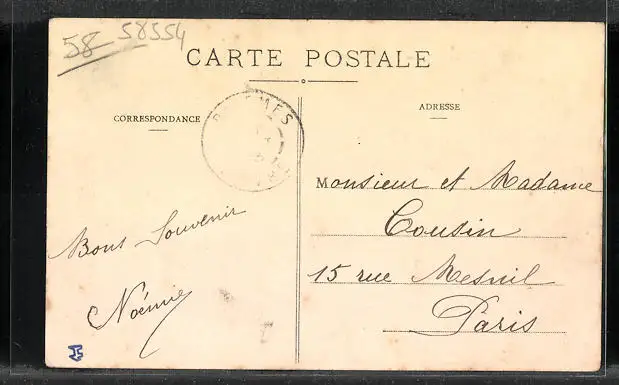 58
58554
CARTE POSTALE
CORRESPONDANCE
ADRESSE
Monsieur et Madame
Cousin
15 rue Mesnil
Paris
Bons Souvenir
Noémie